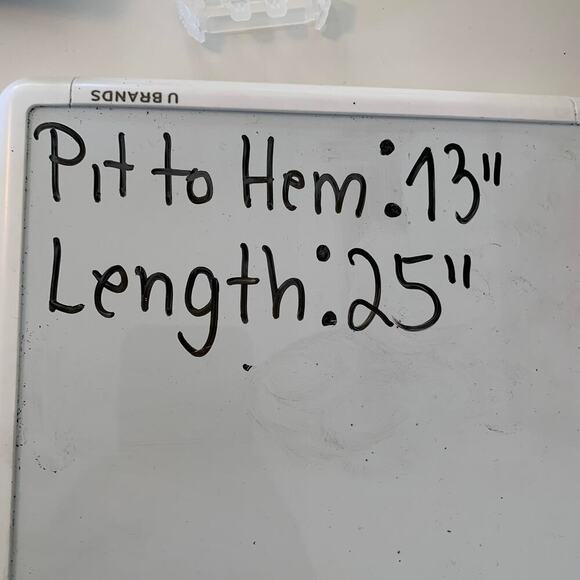 U BRANDS
Pit to Hem: 13"
Length: 25"